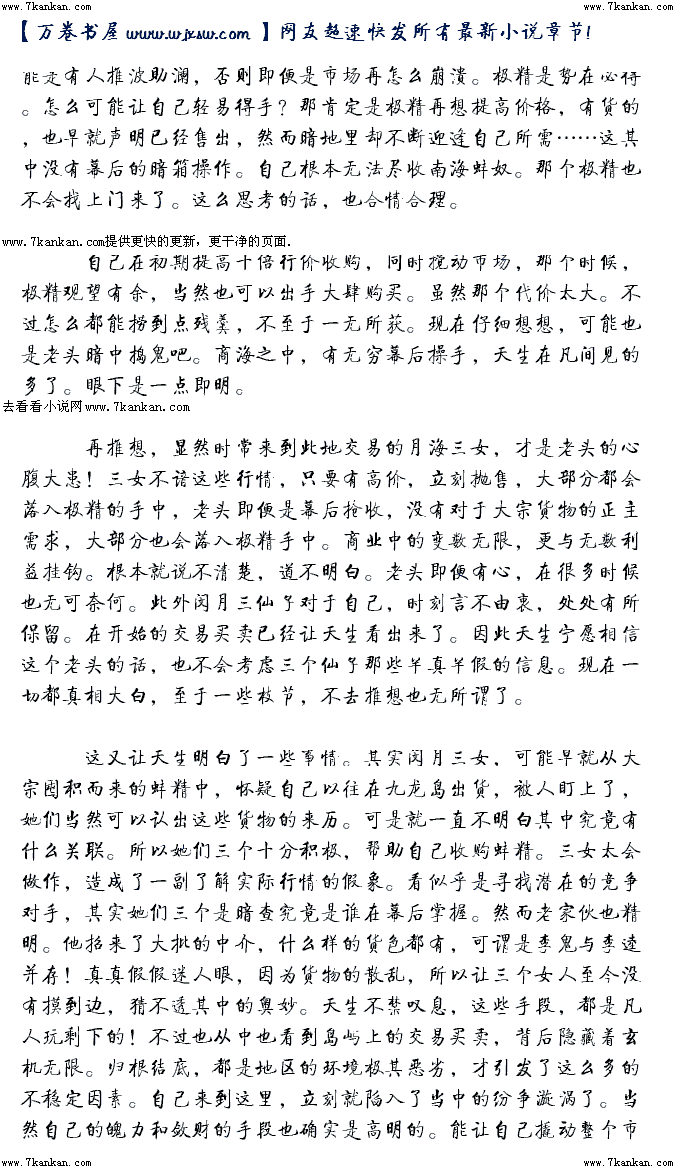 www.7kankan.com www.7kankan.com
【万卷书屋 www.wjxsw.com 】网友超速快发所有最新小说章节!
能是有人推波助澜，否则即便是市场再怎么崩溃。极精是势在必得
。怎么可能让自己轻易得手？那肯定是极精再想提高价格，有货的
，也早就声明已经售出，然而暗地里却不断迎逢自己所需……这其
中没有幕后的暗箱操作。自己根本无法尽收南海蚌奴。那个极精也
不会找上门来了。这么思考的话，也合情合理。
www.7kankan.com提供更快的更新，更干净的页面.
自己在初期提高十倍行价收购，同时搅动市场，那个时候，
极精观望有余，当然也可以出手大肆购买。虽然那个代价太大。不
过怎么都能捞到点残羹，不至于一无所获。现在仔细想想，可能也
是老头暗中捣鬼吧。商海之中，有无穷幕后操手，天生在凡间见的
多了。眼下是一点即明。
去看看小说网www.7kankan.com
再推想，显然时常来到此地交易的月海三女，才是老头的心
腹大患！三女不谙这些行情，只要有高价，立刻抛售，大部分都会
落入极精的手中，老头即便是幕后抢收，没有对于大宗货物的正主
需求，大部分也会落入极精手中。商业中的变数无限，更与无数利
益挂钩。根本就说不清楚，道不明白。老头即便有心，在很多时候
也无可奈何。此外闵月三仙子对于自己，时刻言不由衷，处处有所
保留。在开始的交易买卖已经让天生看出来了。因此天生宁愿相信
这个老头的话，也不会考虑三个仙子那些半真半假的信息。现在一
切都真相大白，至于一些枝节，不去推想也无所谓了。
这又让天生明白了一些事情。其实闵月三女，可能早就从大
宗囤积而来的蚌精中，怀疑自己以往在九龙岛出货，被人盯上了，
她们当然可以认出这些货物的来历。可是就一直不明白其中究竟有
什么关联。所以她们三个十分积极，帮助自己收购蚌精。三女太会
做作，造成了一副了解实际行情的假象。看似乎是寻找潜在的竞争
对手，其实她们三个是暗查究竟是谁在幕后掌握。然而老家伙也精
明。他招来了大批的中介，什么样的货色都有，可谓是李鬼与李逵
并存！真真假假迷人眼，因为货物的散乱，所以让三个女人至今没
有摸到边，猜不透其中的奥妙。天生不禁叹息，这些手段，都是凡
人玩剩下的！不过也从中也看到岛屿上的交易买卖，背后隐藏着玄
机无限。归根结底，都是地区的环境极其恶劣，才引发了这么多的
不稳定因素。自己来到这里，立刻就陷入了当中的纷争漩涡了。当
然自己的魄力和敛财的手段也确实是高明的。能让自己撬动整个市
www.7kankan.com www.7kankan.com